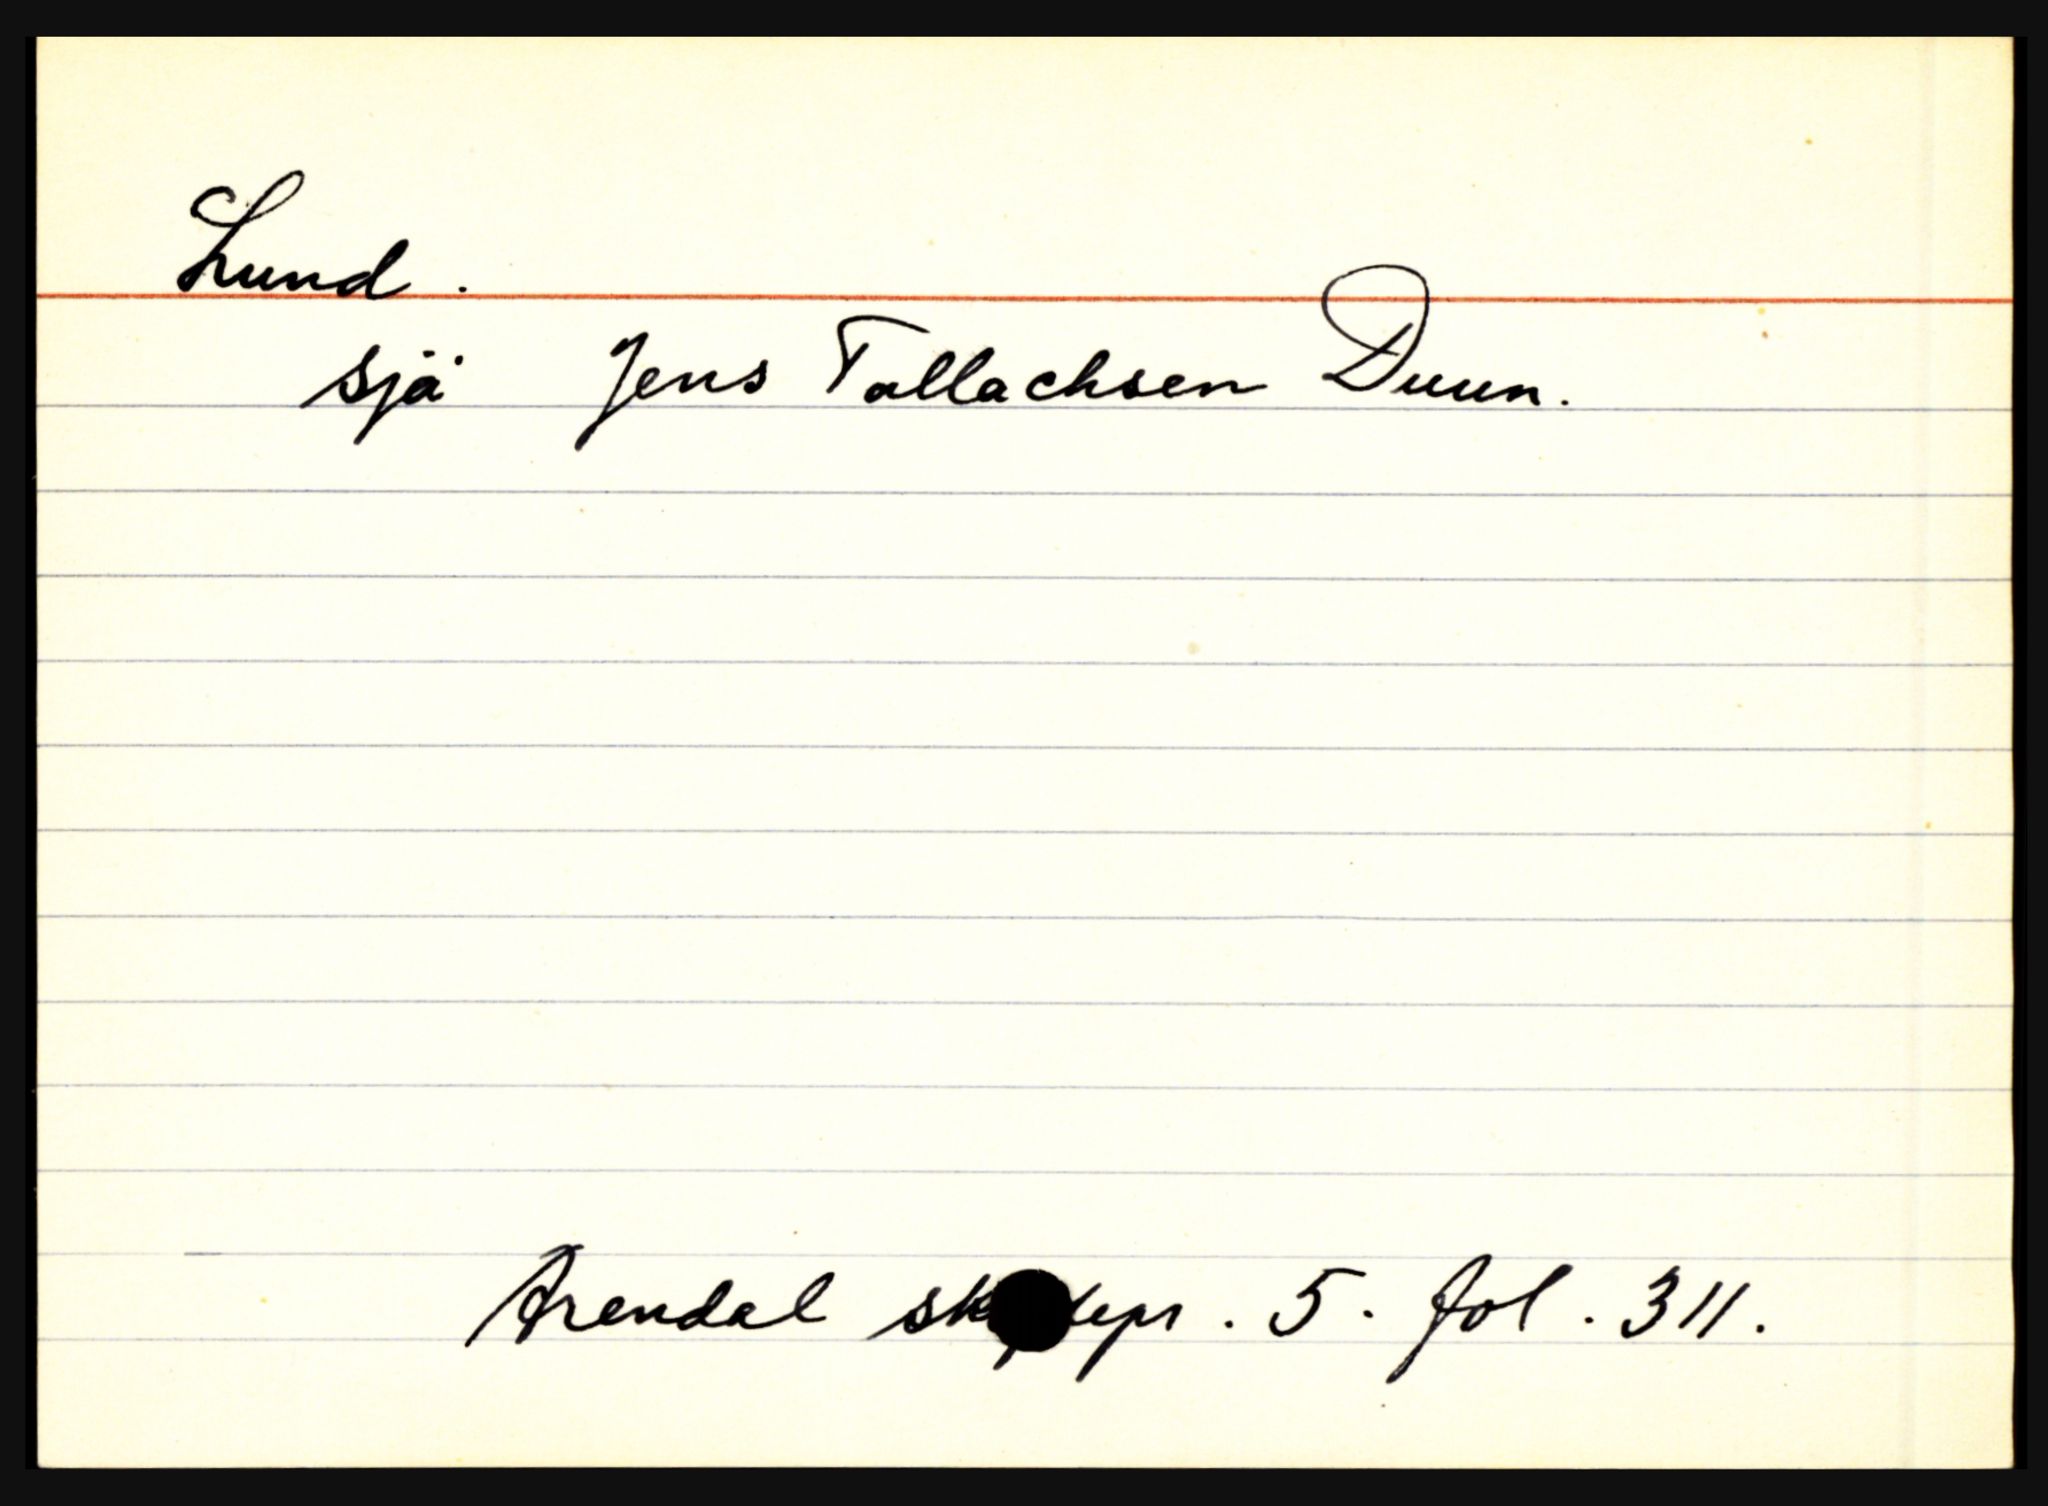 Lund.
sjå Jens Tallachsen Duun.
Arendal skjøtepr. 5. fol. 311.